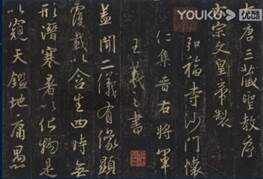 YOUKU
大唐三藏聖教序
太宗文皇帝製
弘福寺沙門懷
仁集晉右將軍
王羲之書
蓋聞二儀有像顯
覆載以含生四時無
形潛寒暑以化物是
以窺天鑒地庸愚